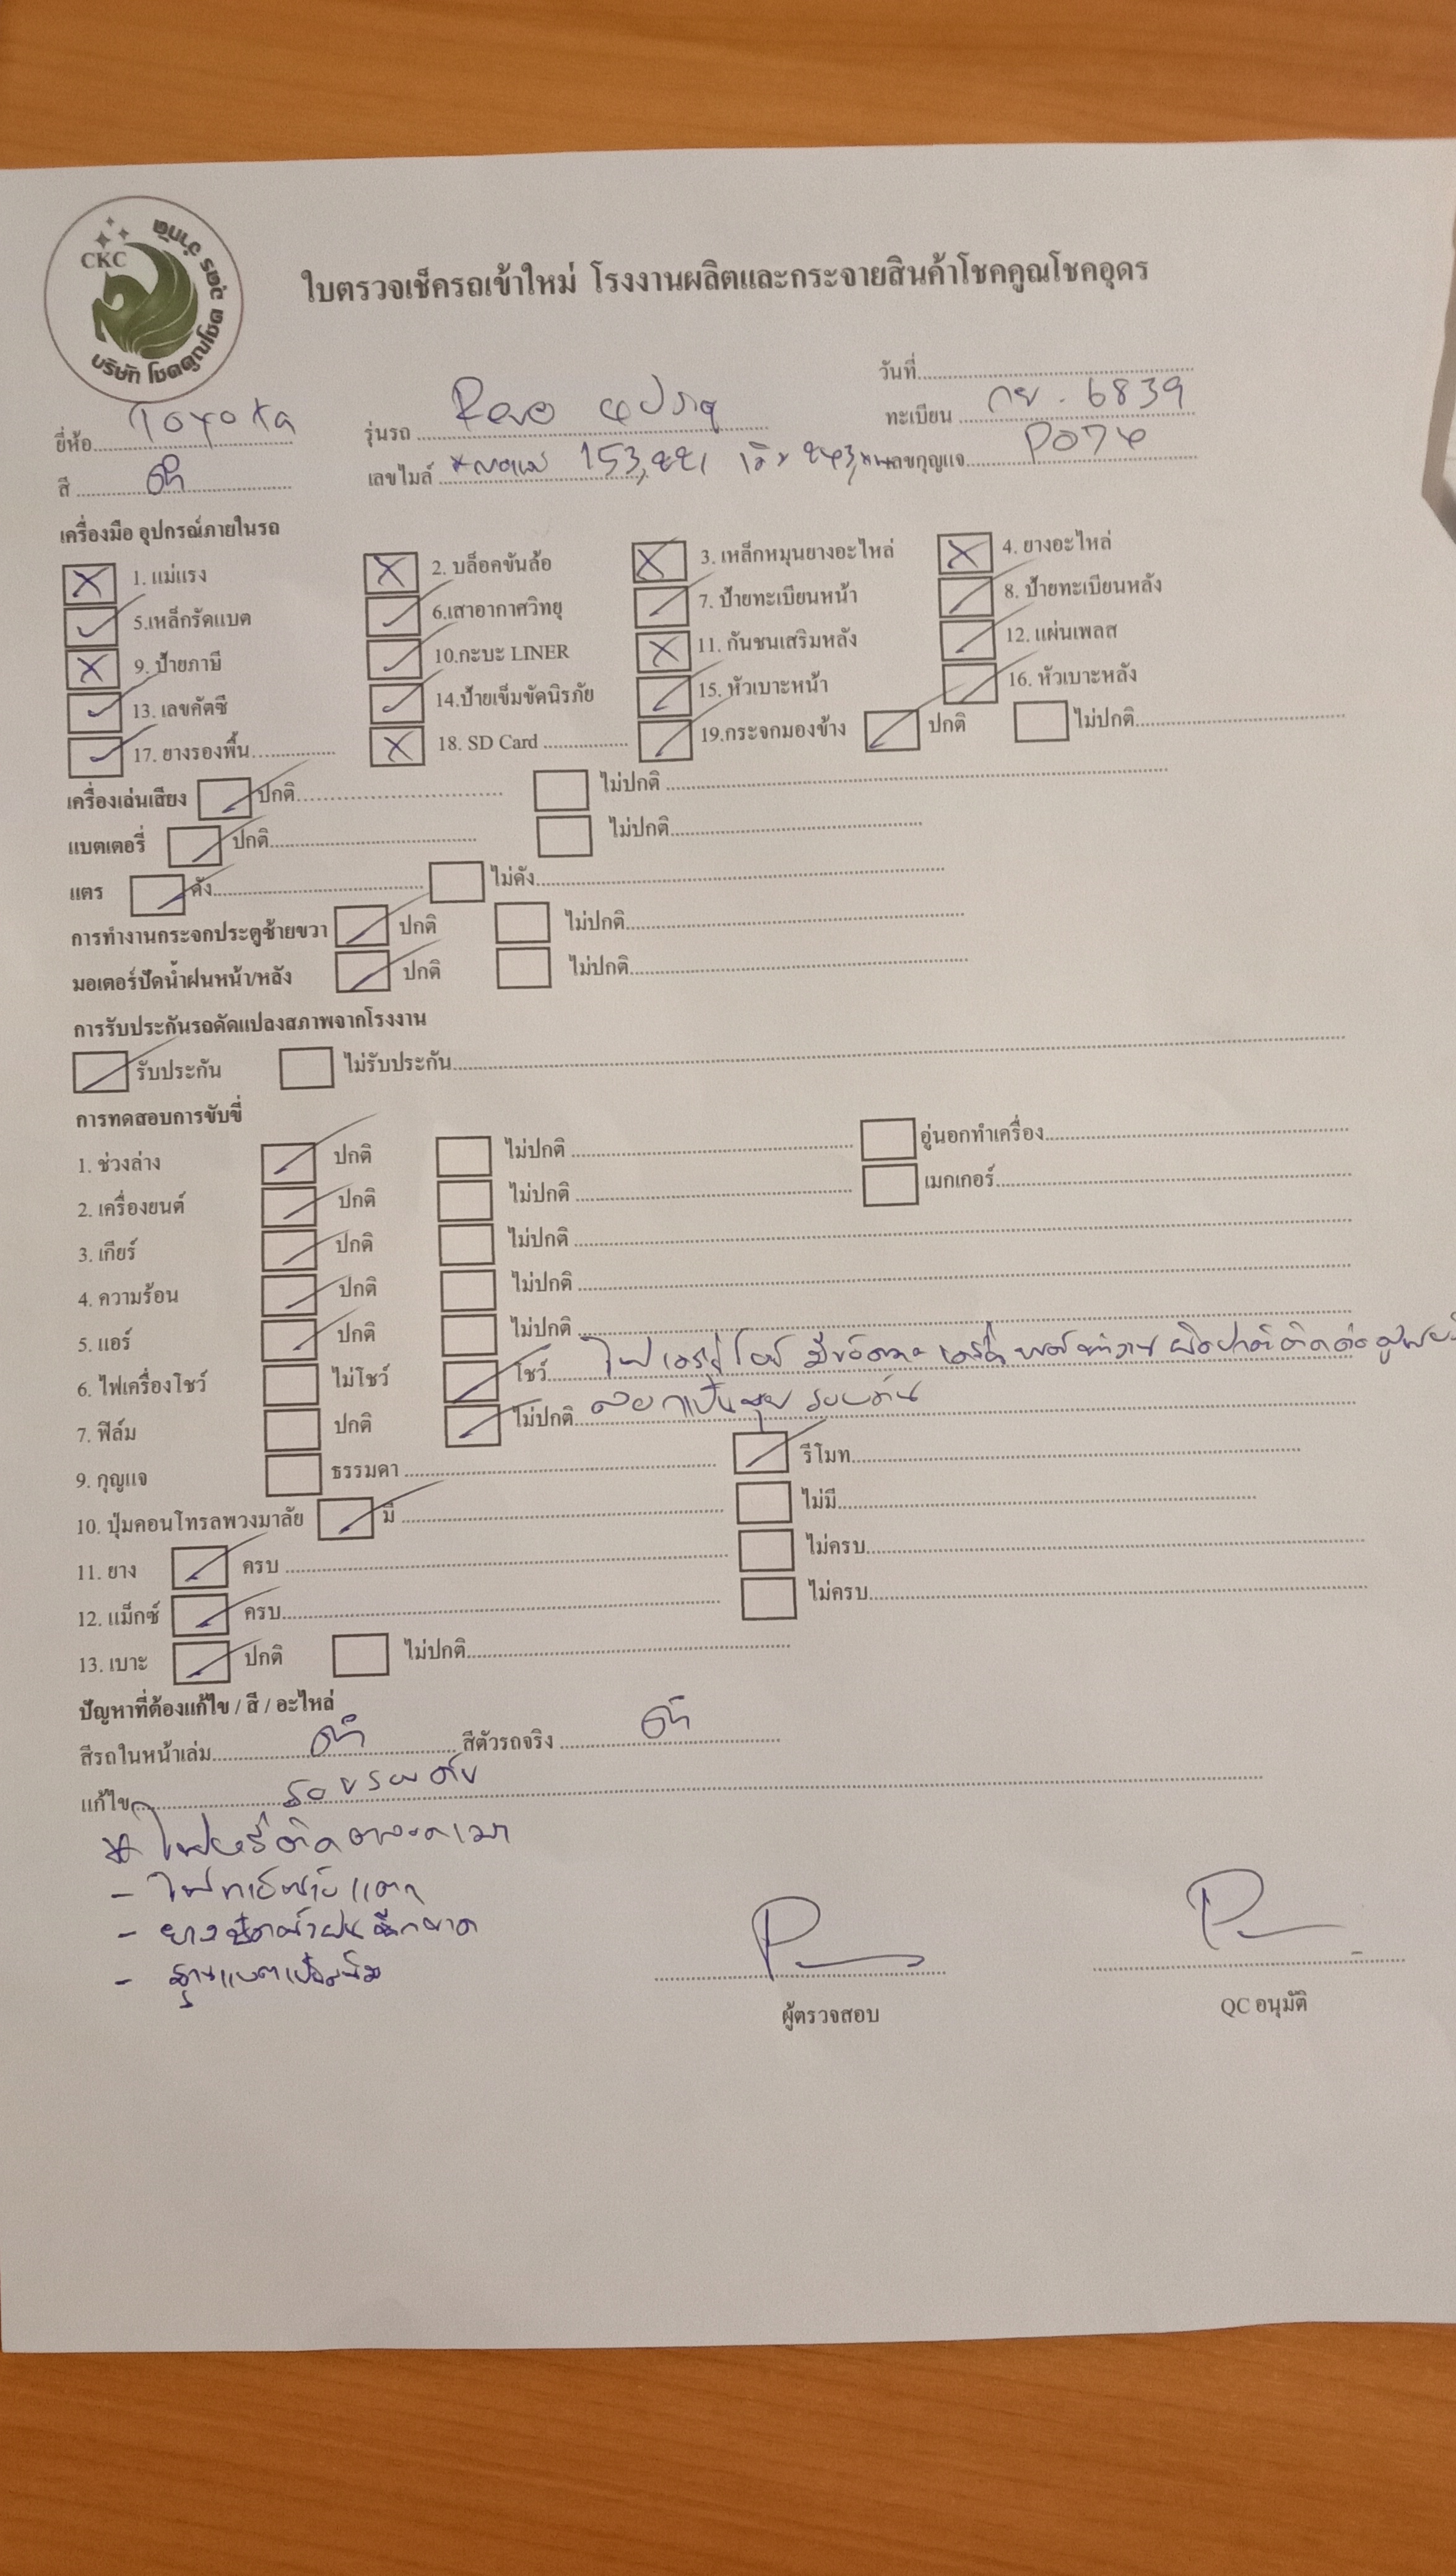 CKC
บริษัท โชคคูณโชค อุดร จำกัด
ใบตรวจเช็ครถเข้าใหม่ โรงงานผลิตและกระจายสินค้าโชคคูณโชคอุดร
วันที่
ยี่ห้อ Toyota รุ่นรถ Revo 4ประตู ทะเบียน กย. 6839
สี ดำ เลขไมล์ 153,221 เลขกุญแจ P074
เครื่องมือ อุปกรณ์ภายในรถ
1. แม่แรง 2. บล็อคขันล้อ 3. เหล็กหมุนยางอะไหล่ 4. ยางอะไหล่
5.เหล็กรัดแบต 6.เสาอากาศวิทยุ 7. ป้ายทะเบียนหน้า 8. ป้ายทะเบียนหลัง
9. ป้ายภาษี 10.กะบะ LINER 11. กันชนเสริมหลัง 12. แผ่นเพลส
13. เลขคัตซี 14.ป้ายเข็มขัดนิรภัย 15. หัวเบาะหน้า 16. หัวเบาะหลัง
17. ยางรองพื้น 18. SD Card 19.กระจกมองข้าง ปกติ ไม่ปกติ
เครื่องเล่นเสียง ปกติ ไม่ปกติ
แบตเตอรี่ ปกติ ไม่ปกติ
แตร ดัง ไม่ดัง
การทำงานกระจกประตูซ้ายขวา ปกติ ไม่ปกติ
มอเตอร์ปัดน้ำฝนหน้า/หลัง ปกติ ไม่ปกติ
การรับประกันรถดัดแปลงสภาพจากโรงงาน
รับประกัน ไม่รับประกัน
การทดสอบการขับขี่
1. ช่วงล่าง ปกติ ไม่ปกติ อู่นอกทำเครื่อง
2. เครื่องยนต์ ปกติ ไม่ปกติ เมกเกอร์
3. เกียร์ ปกติ ไม่ปกติ
4. ความร้อน ปกติ ไม่ปกติ
5. แอร์ ปกติ ไม่ปกติ
6. ไฟเครื่องโชว์ ไม่โชว์ โชว์ ไฟเครื่องโชว์ มีข้อความ เครื่องยนต์ทำงานผิดปกติติดต่อ
7. ฟิล์ม ปกติ ไม่ปกติ ลอกเป็นขุย รอบคัน
9. กุญแจ ธรรมดา รีโมท
10. ปุ่มคอนโทรลพวงมาลัย มี ไม่มี
11. ยาง ครบ ไม่ครบ
12. แม็กซ์ ครบ ไม่ครบ
13. เบาะ ปกติ ไม่ปกติ
ปัญหาที่ต้องแก้ไข / สี / อะไหล่
สีรถในหน้าเล่ม ดำ สีตัวรถจริง ดำ
แก้ไข รอบคัน
* ไฟหรี่ติดตลอดเวลา
- ไฟท้ายซ้ายแตก
- ยางปัดน้ำฝนฉีกขาด
- ฐานแบตเป็นสนิม
ผู้ตรวจสอบ QC อนุมัติ